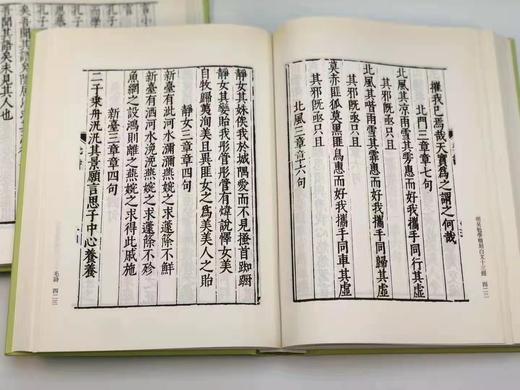 摧我已焉哉天實為之謂之何哉
北門三章章七句
北風其凉雨雪其雱惠而好我攜手同行其虛
其邪既亟只且
北風其喈雨雪其霏惠而好我攜手同歸其虛
其邪既亟只且
莫赤匪狐莫黑匪烏惠而好我攜手同車其虛
其邪既亟只且
北風三章章六句
四二二
靜女其姝俟我於城隅愛而不見搔首踟躕
靜女其孌貽我彤管彤管有煒說懌女美
自牧歸荑洵美且異匪女之為美美人之貽
靜女三章章四句
新臺有泚河水瀰瀰燕婉之求籧篨不鮮
新臺有洒河水浼浼燕婉之求籧篨不殄
魚網之設鴻則離之燕婉之求得此戚施
新臺三章章四句
二子乘舟汎汎其景願言思子中心養養
毛詩 四二三
矣吾聞其語矣未見其人也